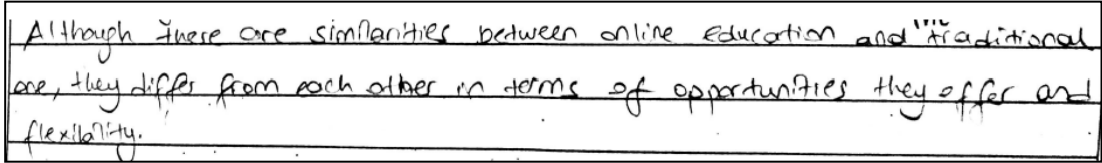 Although there are similarities between online education and the traditional
one, they differ from each other in terms of opportunities they offer and
flexibility.